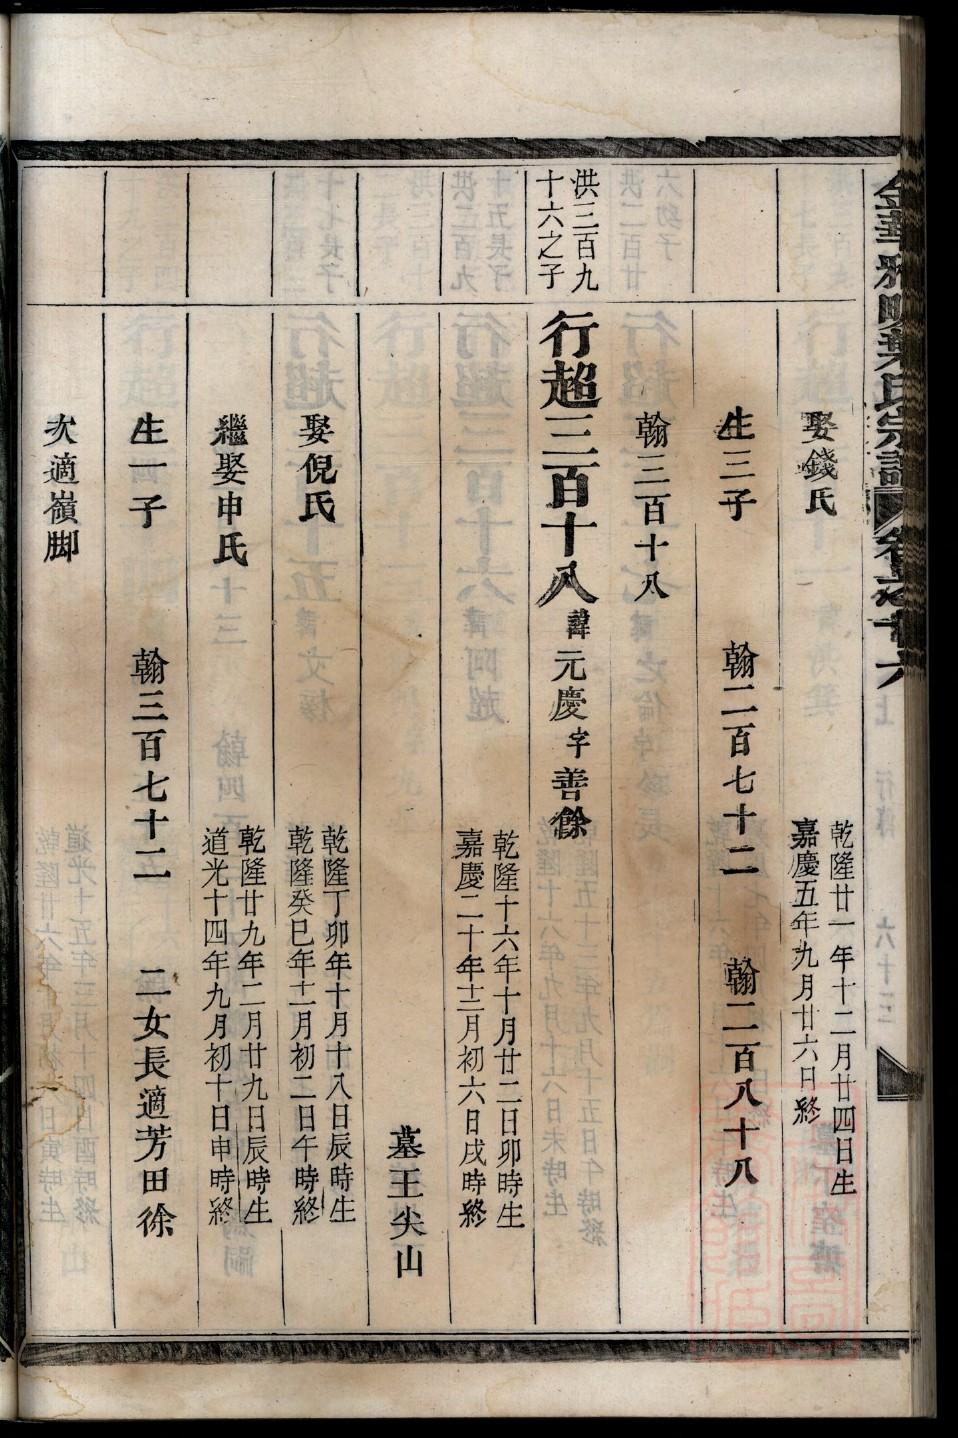 娶錢氏
乾隆廿一年十二月廿四日生
嘉慶五年九月廿六日終
生三子 翰二百七十二 翰二百八十八
翰三百十八
洪三百九
十六之子
行超三百十八諱元慶字善餘
乾隆十六年十月廿二日卯時生
嘉慶二十年十二月初六日戌時終
墓王尖山
娶倪氏
乾隆丁卯年十月十八日辰時生
乾隆癸巳年十二月初二日午時終
繼娶申氏
乾隆廿九年二月廿九日辰時生
道光十四年九月初十日申時終
生一子 翰三百七十二 二女長適芳田徐
次適嶺脚